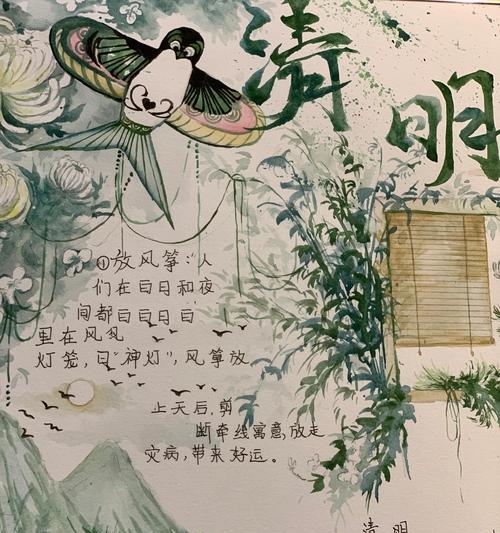 清明
①放风筝:人
们在白日和夜
间都白白日白
里在风
灯笼,曰“神灯”,风筝放
上天后,剪
断牵线寓意,放走
灾病,带来好运。
清 明